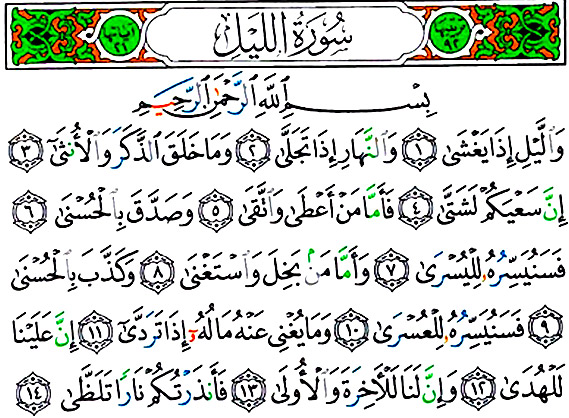 سُورَةُ اللَّيْلِ
بِسْمِ ٱللَّهِ ٱلرَّحْمَٰنِ ٱلرَّحِيمِ
وَٱلَّيْلِ إِذَا يَغْشَىٰ ١ وَٱلنَّهَارِ إِذَا تَجَلَّىٰ ٢ وَمَا خَلَقَ ٱلذَّكَرَ وَٱلْأُنثَىٰٓ ٣
إِنَّ سَعْيَكُمْ لَشَتَّىٰ ٤ فَأَمَّا مَنْ أَعْطَىٰ وَٱتَّقَىٰ ٥ وَصَدَّقَ بِٱلْحُسْنَىٰ ٦
فَسَنُيَسِّرُهُۥ لِلْيُسْرَىٰ ٧ وَأَمَّا مَنۢ بَخِلَ وَٱسْتَغْنَىٰ ٨ وَكَذَّبَ بِٱلْحُسْنَىٰ
٩ فَسَنُيَسِّرُهُۥ لِلْعُسْرَىٰ ١٠ وَمَا يُغْنِى عَنْهُ مَالُهُۥٓ إِذَا تَرَدَّىٰٓ ١١ إِنَّ عَلَيْنَا
لَلْهُدَىٰ ١٢ وَإِنَّ لَنَا لَلْءَاخِرَةَ وَٱلْأُولَىٰ ١٣ فَأَنذَرْتُكُمْ نَارًا تَلَظَّىٰ ١٤